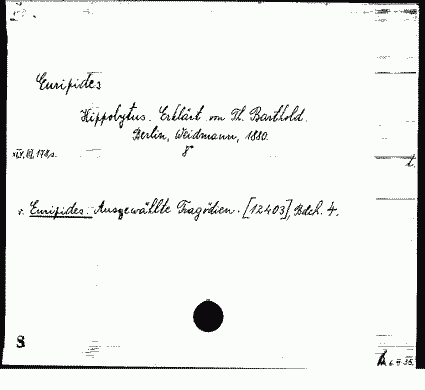 Euripides
Hippolytus. Erklärt von Th. Barthold.
Berlin, Weidmann, 1880.
8°
v. Euripides: Ausgewählte Tragödien. [12403], Bdch. 4.
8